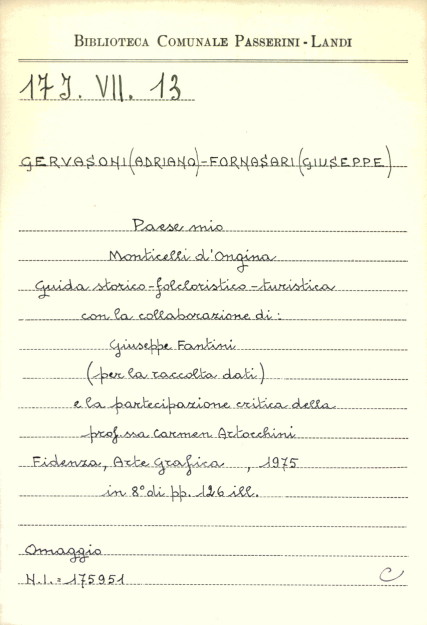 BIBLIOTECA COMUNALE PASSERINI-LANDI
17 J. VII. 13
GERVASONI (ADRIANO)-FORNASARI (GIUSEPPE)
Paese mio
Monticelli d'Ongina
Guida storico-folcloristico-turistica
con la collaborazione di:
Giuseppe Fantini
(per la raccolta dati)
e la partecipazione critica della
prof.ssa Carmen Artocchini
Fidenza, Arte Grafica , 1975
in 8° di pp. 126 ill.
Omaggio
N.I. = 175951
C